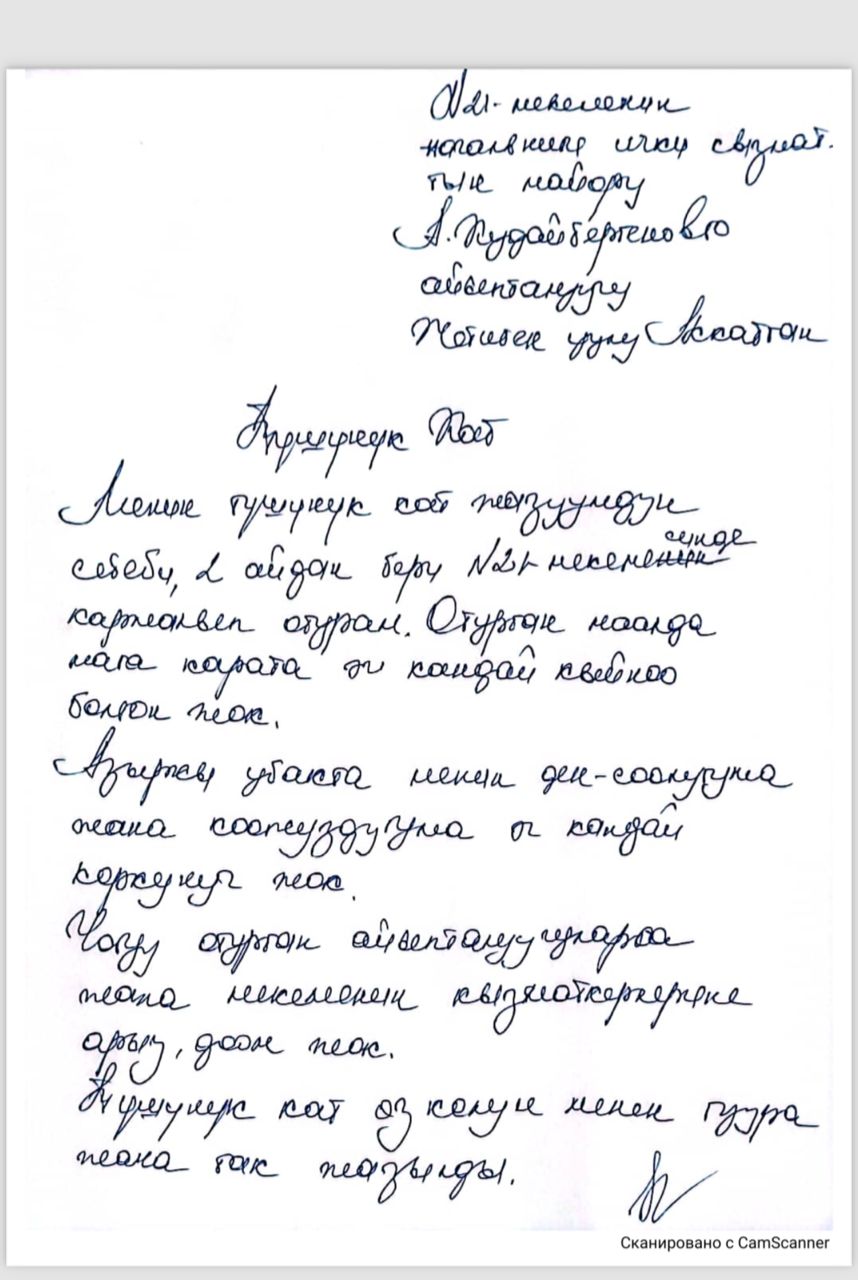 N21-мекеменин
нөөмөтчүлүк ички кызмат.
тык майору
А. Кудайбергеновго
айыпталуучу
Жетибек уулу Аккаттан
Түшүнүк Кат
Менин түшүнүк кат жазуумдун
себеби, 2 айдан бери N21-мекемени̶н̶ синде
кармалып отурам. Отурган маалда
мага карата эч кандай кыйноо
болгон жок.
Азыркы убакта менин ден-соолугума
жана коопсуздугума эч кандай
коркунуч жок.
Чогуу отурган айыпталуучуларга
жана мекеменин кызматкерлерине
арыз, доом жок.
Түшүнүк кат өз колум менен туура
жана так жазылды.
Сканировано с CamScanner